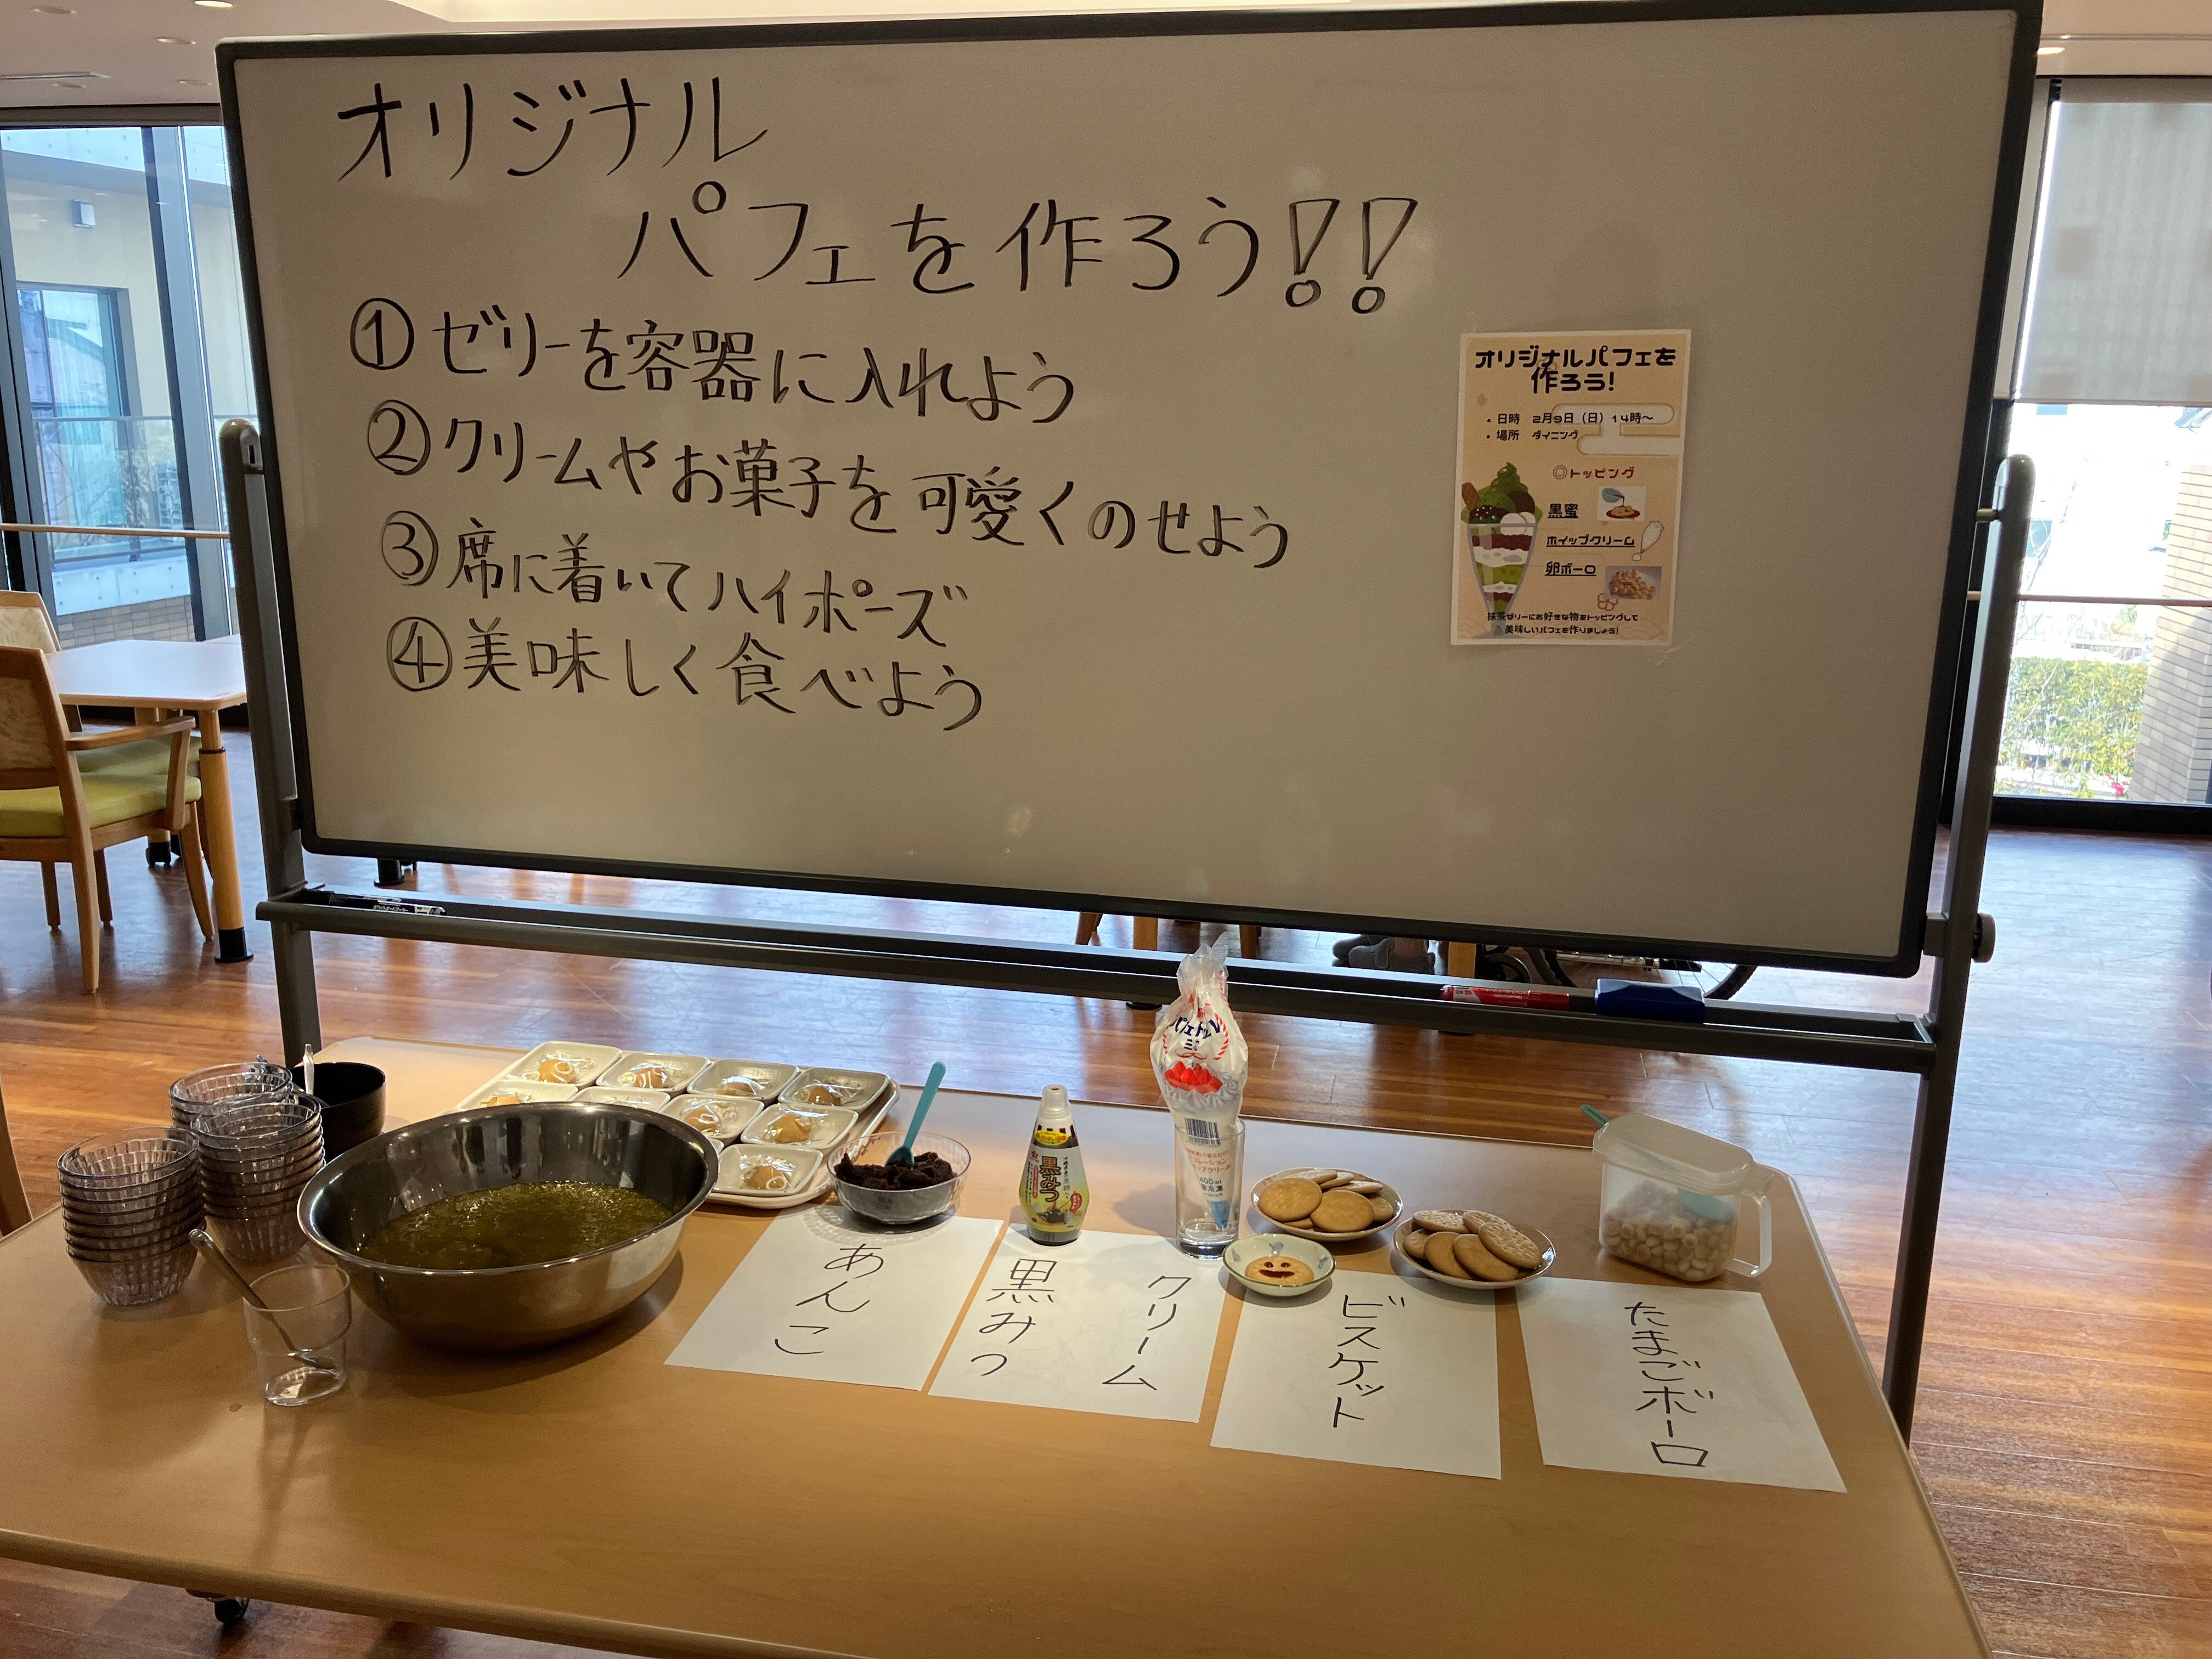 オリジナル
パフェを作ろう!!
①ゼリーを容器に入れよう
②クリームやお菓子を可愛くのせよう
③席に着いてハイポーズ
④美味しく食べよう
オリジナルパフェを
作ろう!
・日時 2月9日(日)14時～
・場所 ダイニング
◎トッピング
黒蜜
ホイップクリーム
卵ボーロ
抹茶ゼリーにお好きな物をトッピングして
美味しいパフェを作りましょう!
黒みつ
あんこ
黒みつ
クリーム
ビスケット
たまごボーロ